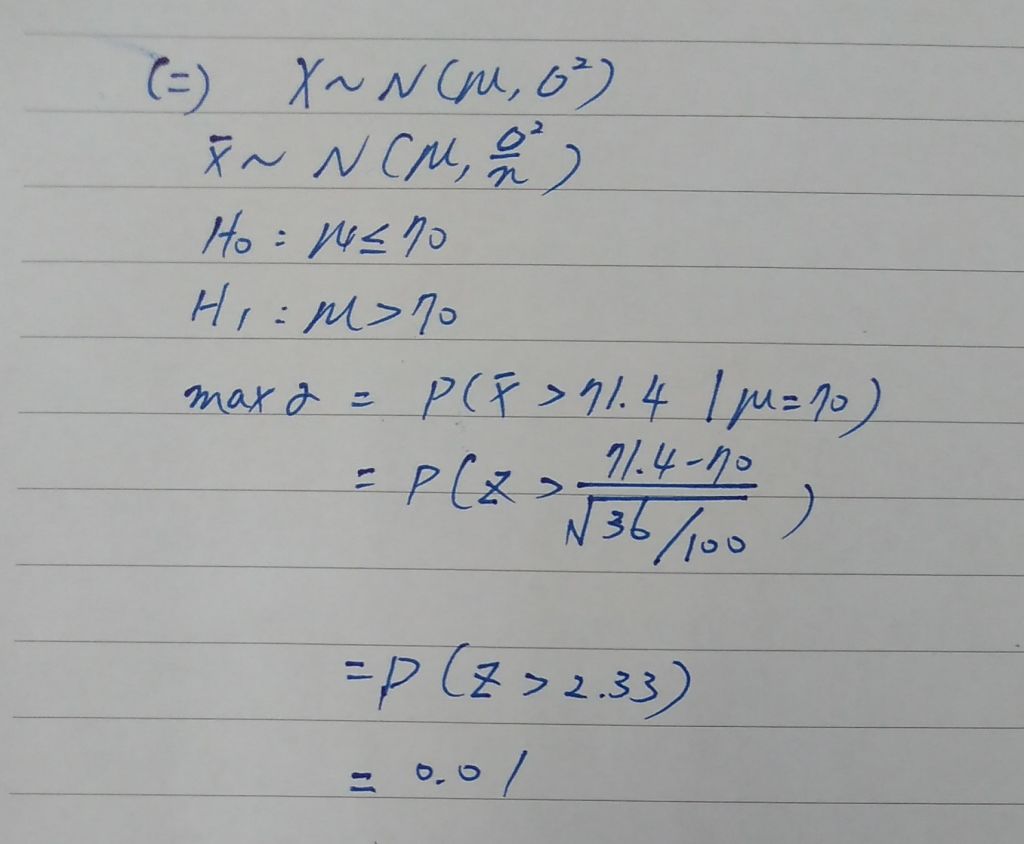 (二) X ~ N(μ, σ²)
x̄ ~ N(μ, σ²/n)
H₀ : μ ≤ 70
H₁ : μ > 70
max α = P(x̄ > 71.4 | μ = 70)
= P(Z > (71.4-70)/√(36/100))
= P(Z > 2.33)
= 0.01